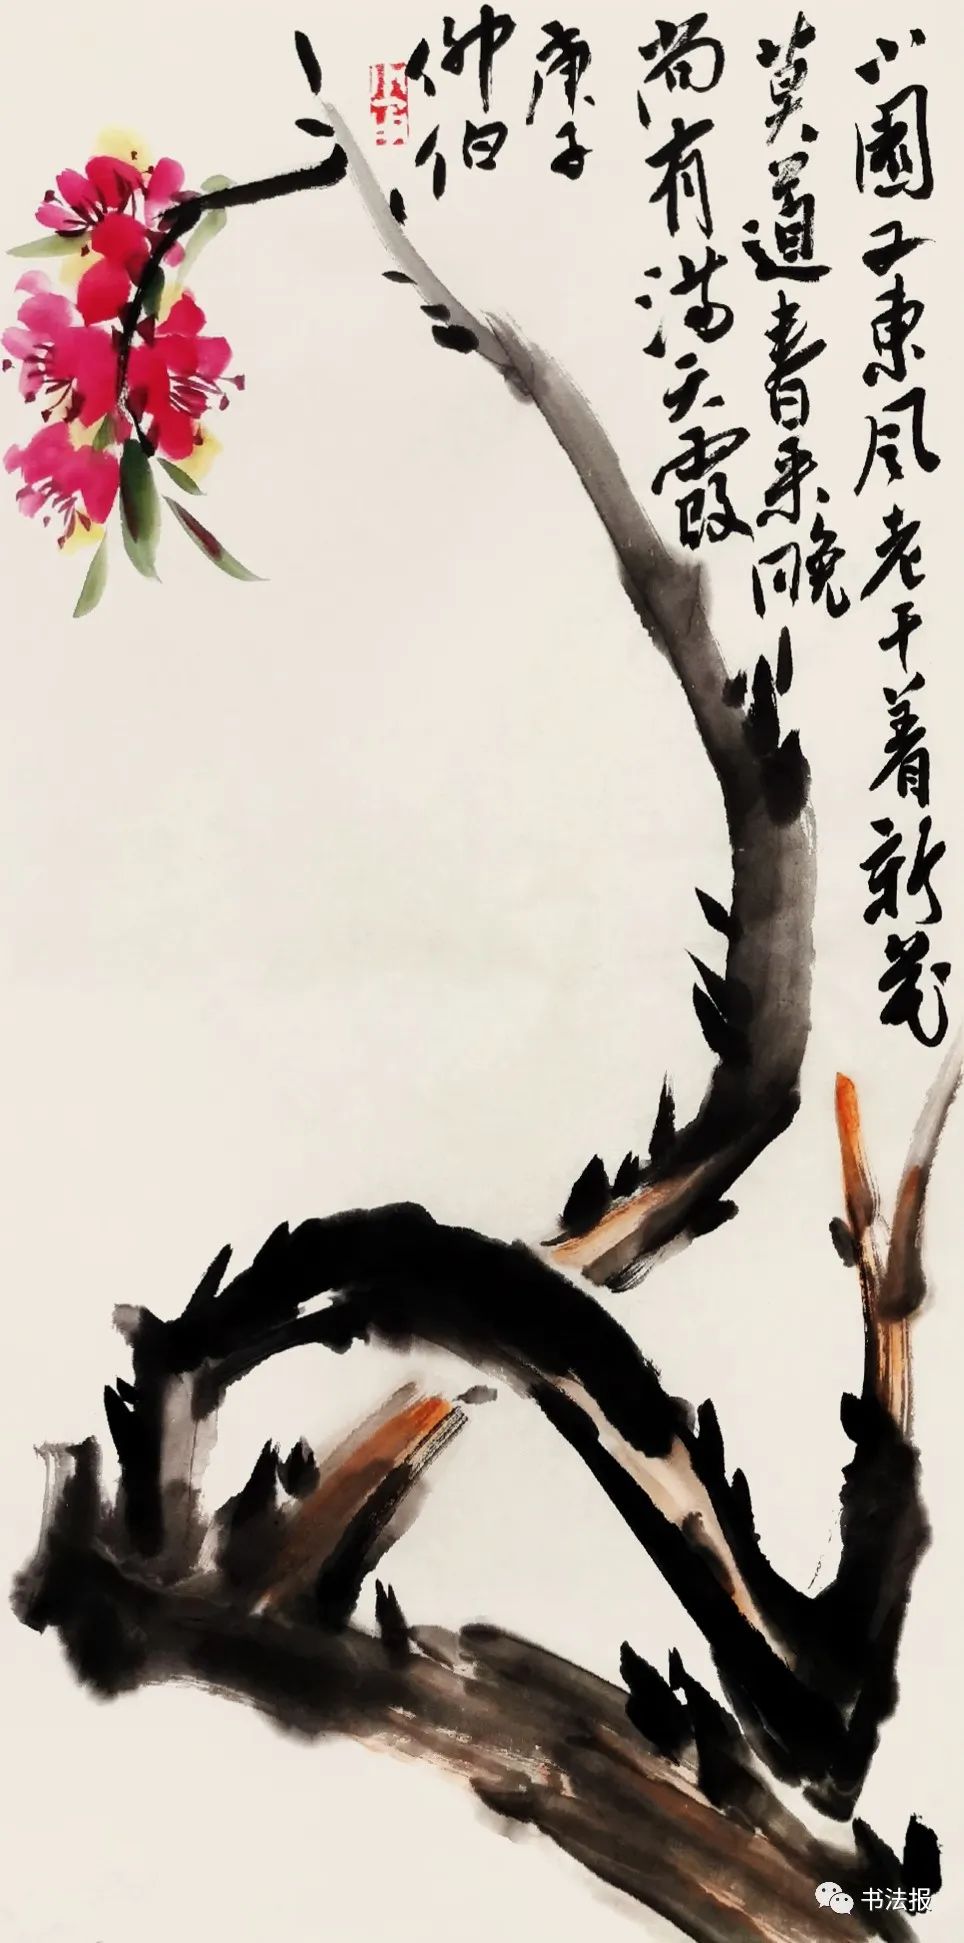 小園又東風老干着新花
莫道春来晚
尚有满天霞
庚子
仲伯
书法报